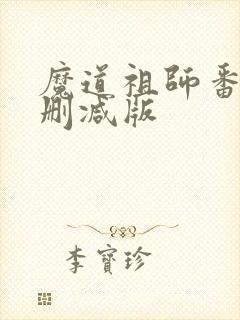 魔道祖师番
删减版
李寶珍